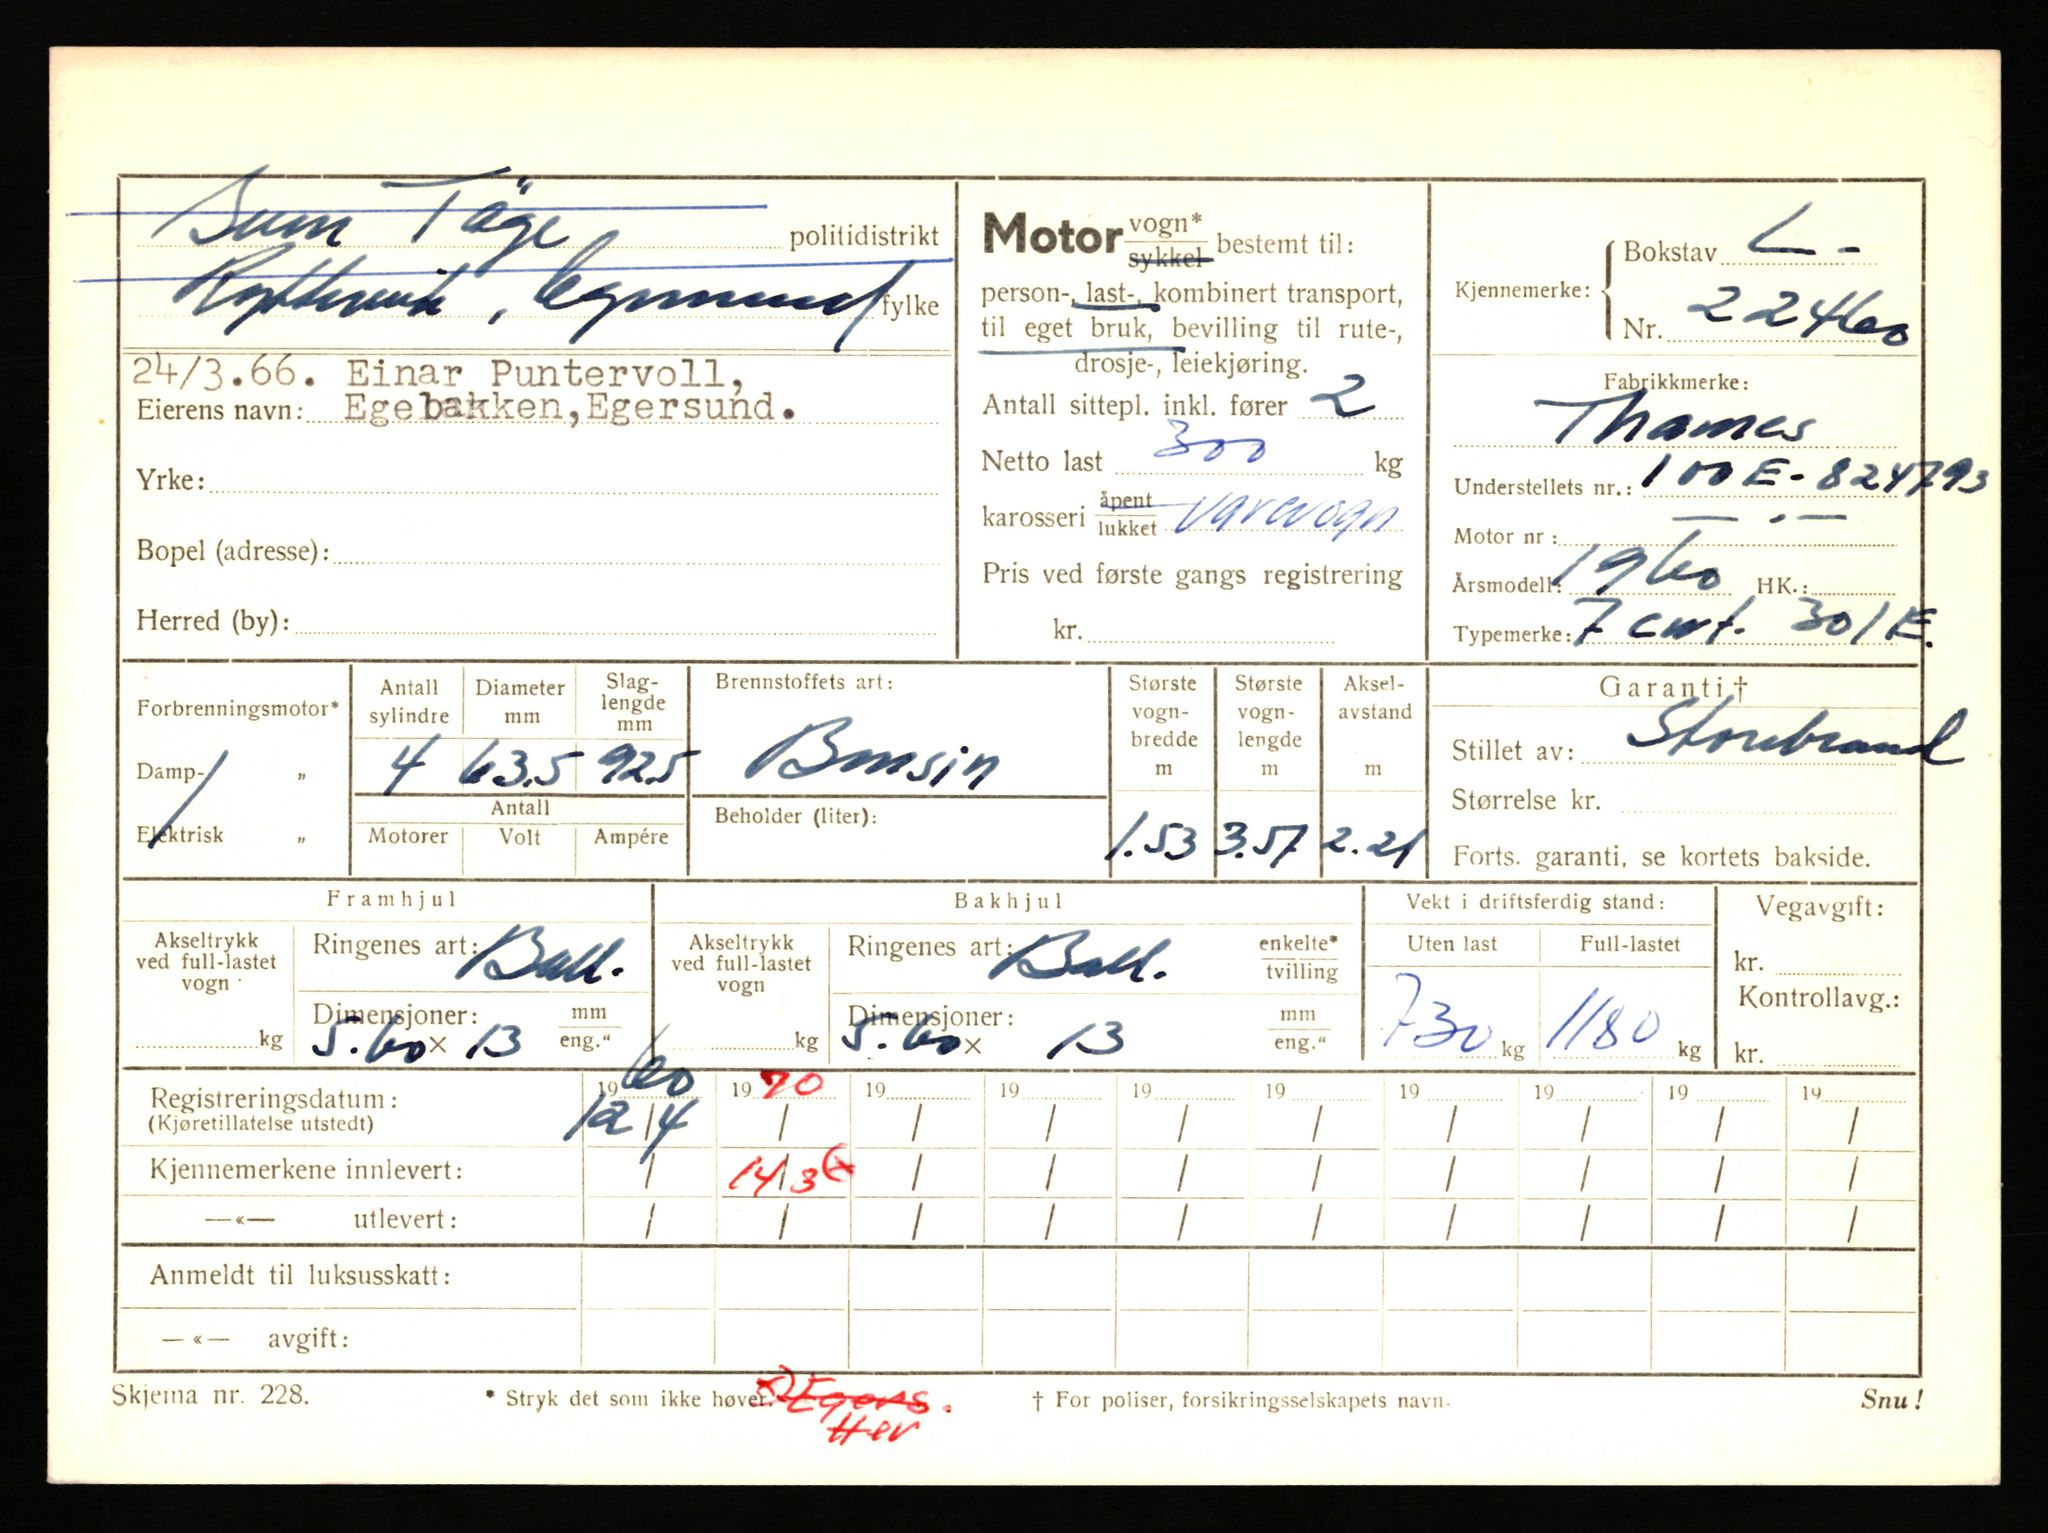 Sum Tåge
politidistrikt
, Egersund fylke
24/3.66. Einar Puntervoll,
Eierens navn: Egebakken, Egersund.
Yrke:
Bopel (adresse):
Herred (by):
Motor vogn* sykkel bestemt til:
person-, last-, kombinert transport,
til eget bruk, bevilling til rute-,
drosje-, leiekjøring.
Antall sittepl. inkl. fører 2
Netto last 300 kg
karosseri åpent lukket varevogn
Pris ved første gangs registrering
kr.
Kjennemerke: Bokstav L-
Nr. 22460
Fabrikkmerke:
Thames
Understellets nr.: 100E-824793
Motor nr: — " —
Årsmodell: 1960 HK.:
Typemerke: 7 cwt. 301E.
Forbrenningsmotor*
Damp- „
Elektrisk „
Antall sylindre
4
Diameter mm
63.5
Slaglengde mm
92.5
Antall
Motorer Volt Ampére
Brennstoffets art:
Bensin
Beholder (liter):
Største vogn-bredde m
1.53
Største vogn-lengde m
3.57
Aksel-avstand m
2.21
Garanti †
Stillet av: Storebrand
Størrelse kr.
Forts. garanti, se kortets bakside.
Framhjul
Akseltrykk ved full-lastet vogn
kg
Ringenes art: Ball.
Dimensjoner: mm eng."
5.60 x 13
Bakhjul
Akseltrykk ved full-lastet vogn
kg
Ringenes art: Ball. enkelte* tvilling
Dimensjoner: mm eng."
5.60 x 13
Vekt i driftsferdig stand:
Uten last Full-lastet
730 kg 1180 kg
Vegavgift:
kr.
Kontrollavg.:
kr.
Registreringsdatum: 1960 1970 19 19 19 19 19 19 19 19
(Kjøretillatelse utstedt) 12/4 / / / / / / / / /
Kjennemerkene innlevert: / 14/3 (x / / / / / / / /
—«— utlevert: / / / / / / / / / /
Anmeldt til luksusskatt:
—«— avgift:
Skjema nr. 228.
* Stryk det som ikke høver.
x) Egers.
Her
† For poliser, forsikringsselskapets navn.
Snu!